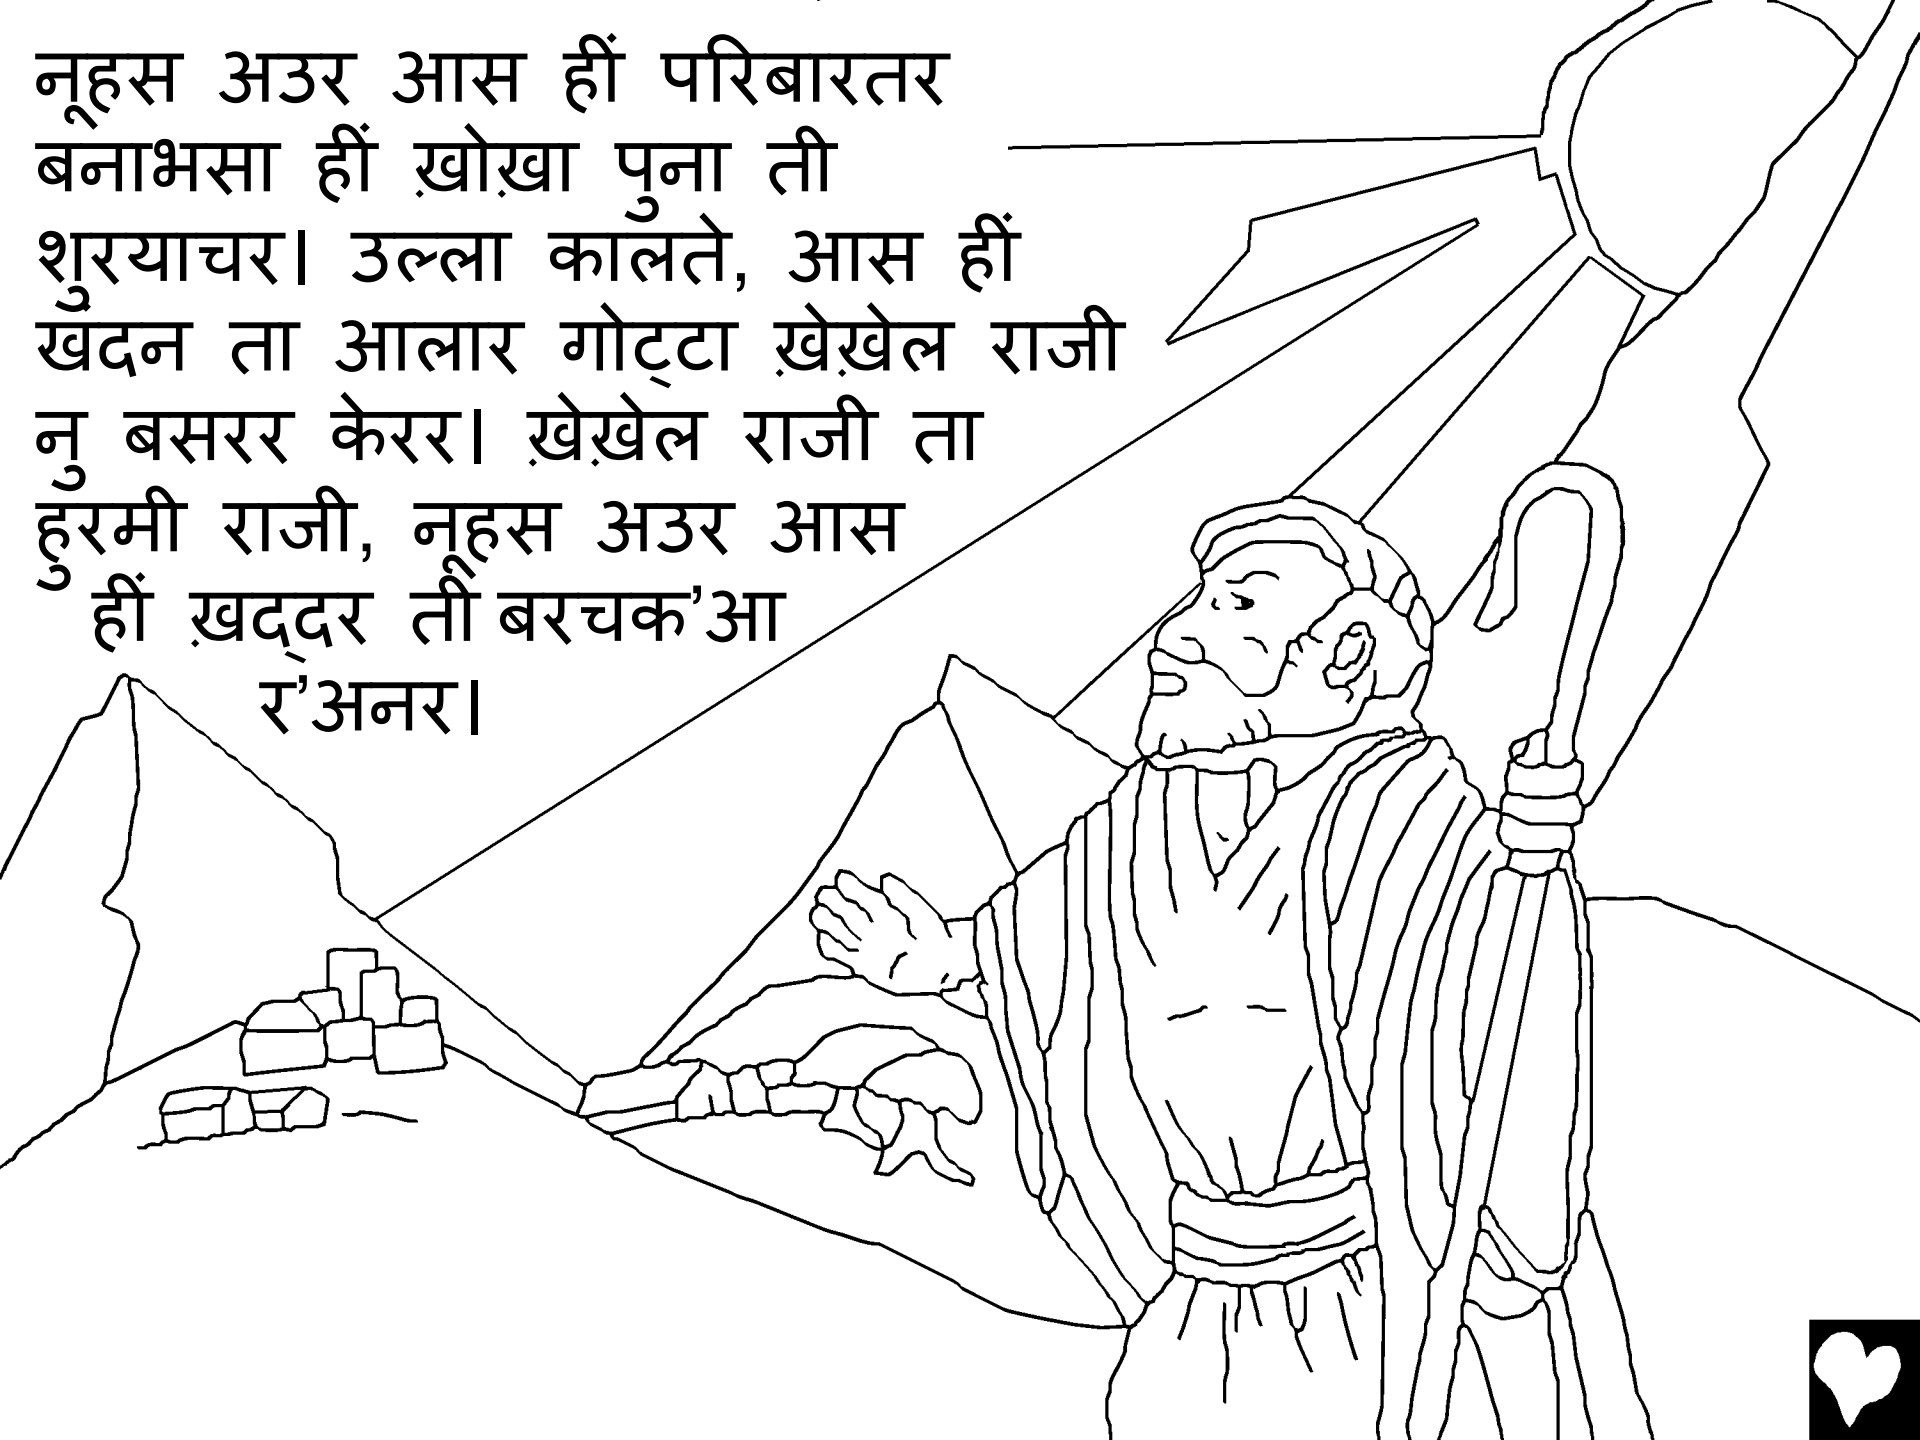 नूहस अउर आस हीं परिबारतर
बनाभसा हीं ख़ोख़ा पुना ती
शुरयाचर। उल्ला कालते, आस हीं
खंदन ता आलार गोट्टा ख़ेख़ेल राजी
नु बसरर केरर। ख़ेख़ेल राजी ता
हुरमी राजी, नूहस अउर आस
हीं ख़द्दर ती बरचक’आ
र’अनर।